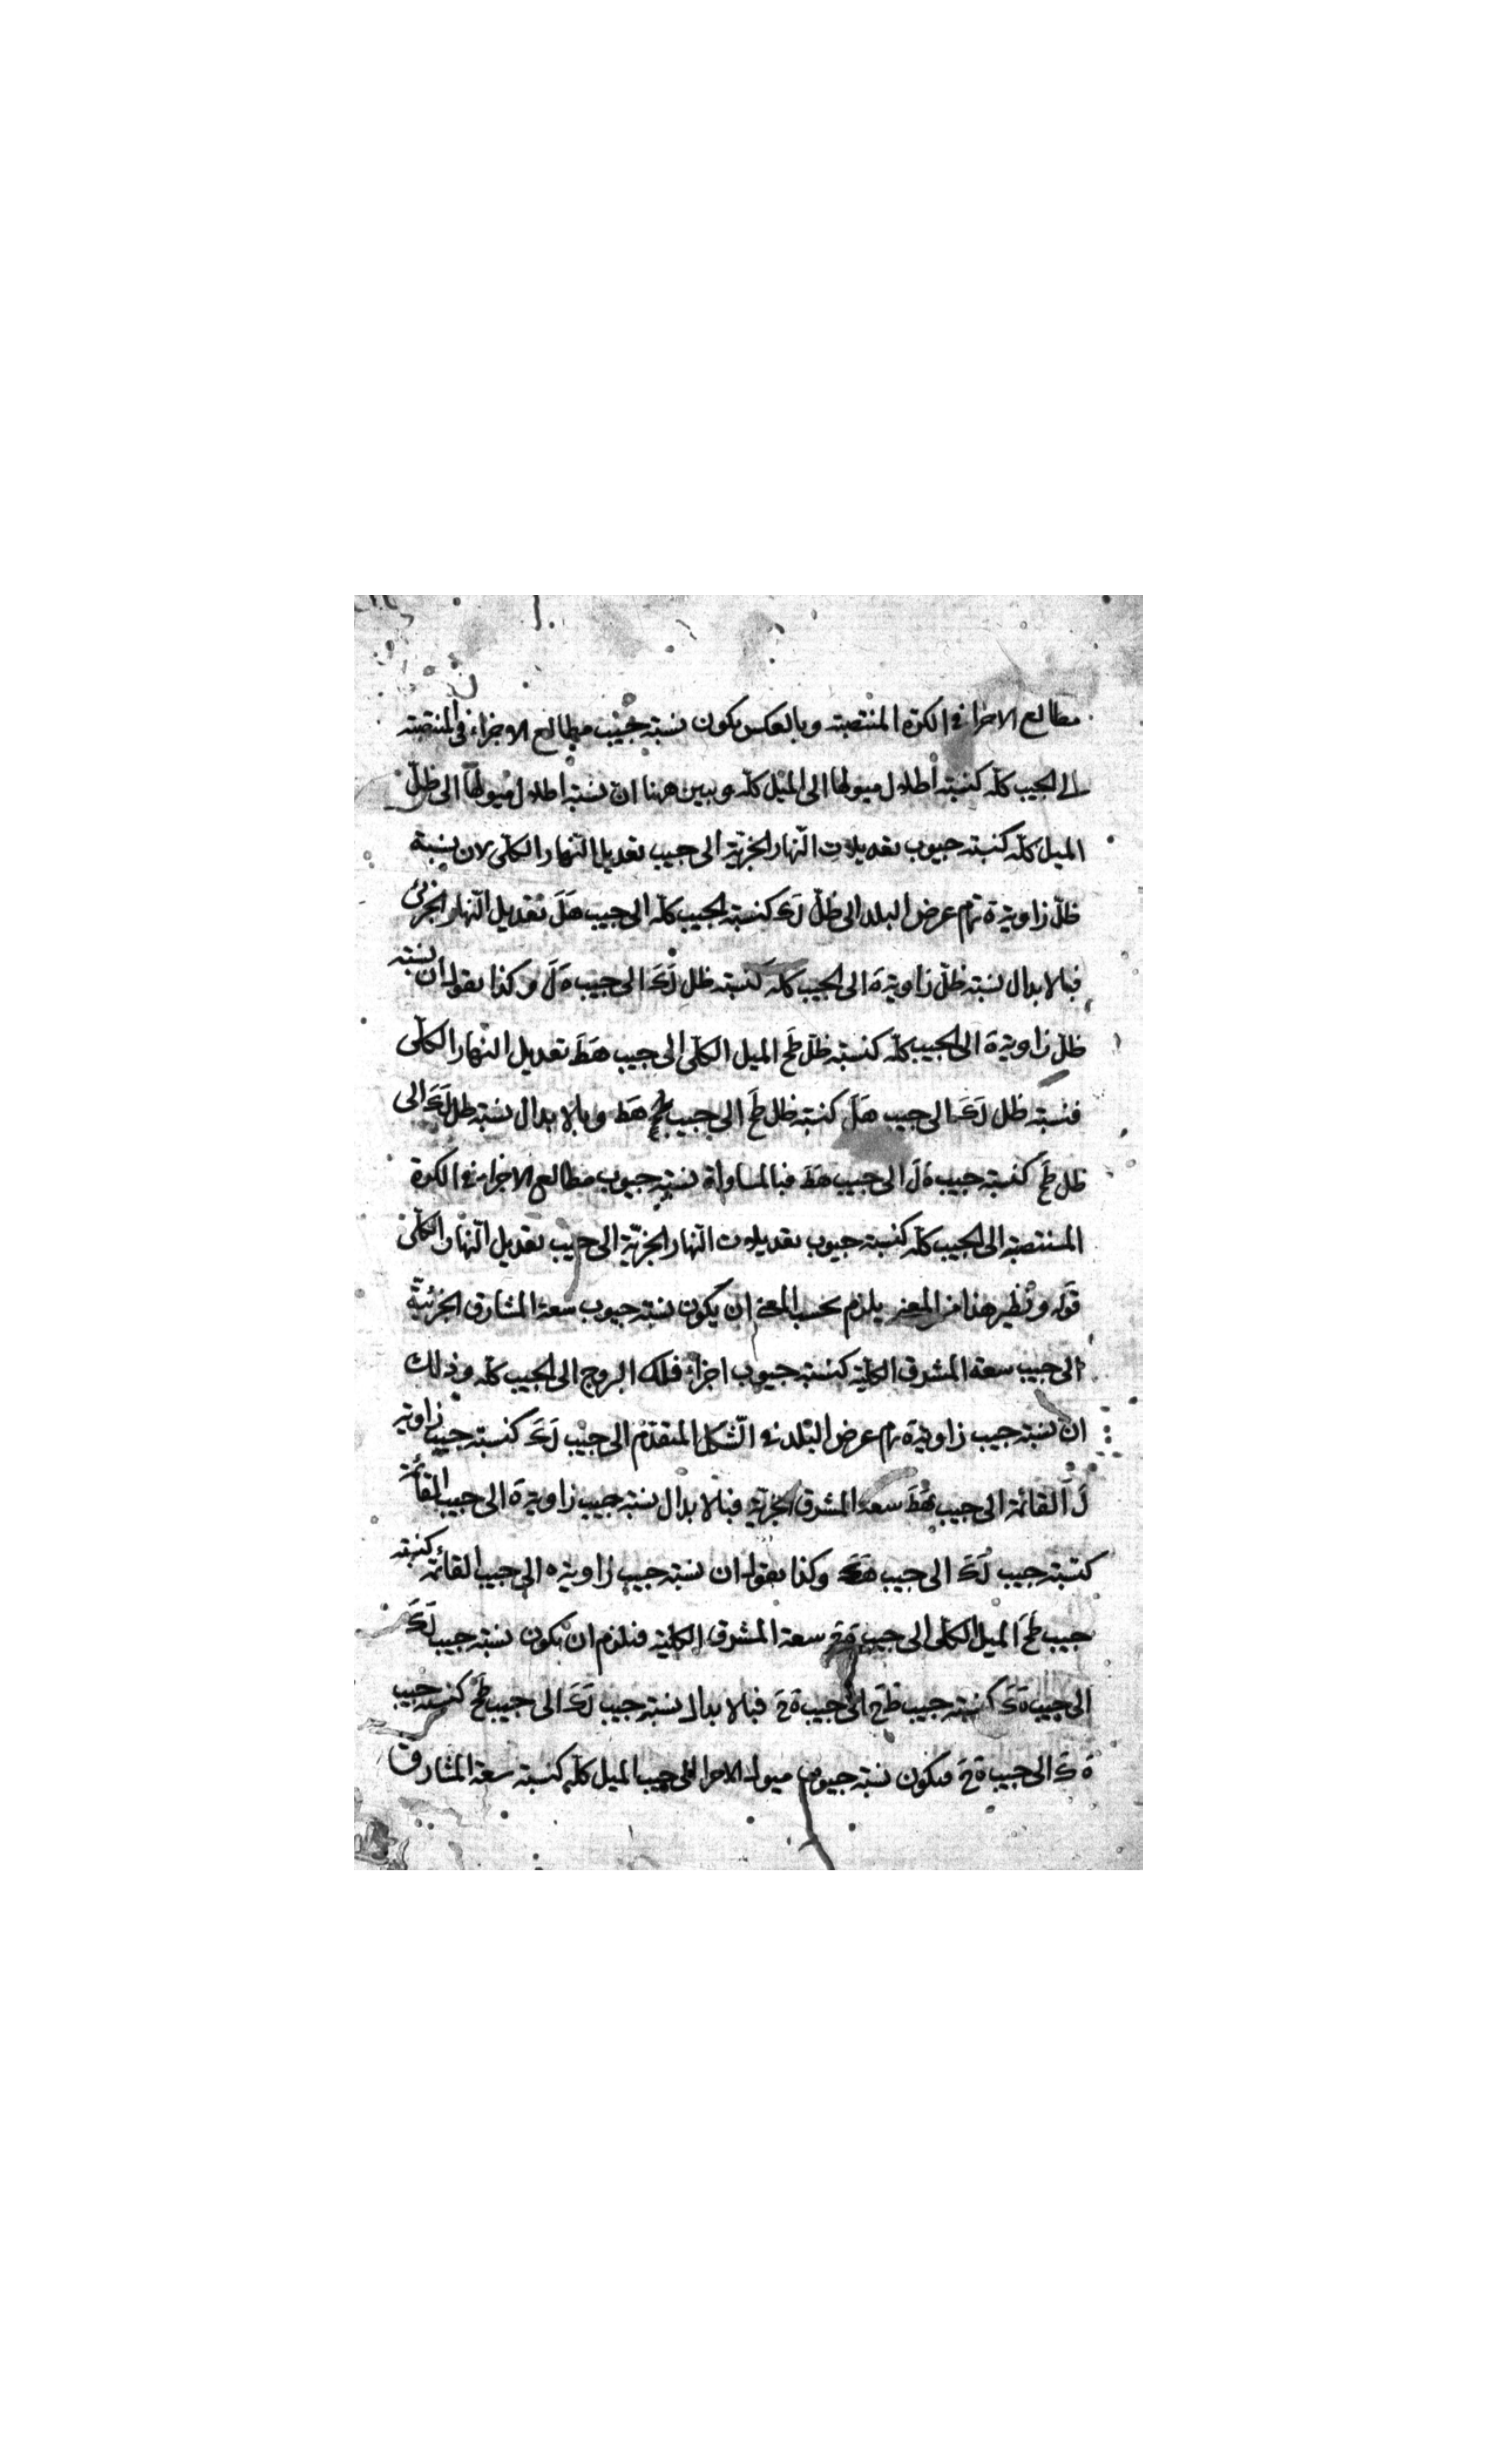 مطالع الاجزا في الكرة المنتصبة وبالعكس يكون نسبة جيب مطالع الاجزاء في المنتصبة
الى الجيب كلّه كنسبة اطلال ميولها الى الميل كلّه وبين ههنا انّ نسبة اطلال ميولها الى ظلّ
الميل كلّه كنسبة جيوب تعديلات النّهار الجزئيّة الى جيب تعديل النّهار الكلّى لان نسبة
ظلّ زاوية ة تمام عرض البلد الى ظلّ لَكَ كنسبة الجيب كلّه الى جيب هَلَ تعديل النّهار الجزئى
فبالابدال نسبة ظلّ زاوية ةَ الى الجيب كله كنسبة ظل لَكَ الى جيب ةَلَ وكذا نقول ان نسبة
ظلّ زاوية ةَ الى الجيب كلّه كنسبة ظلّ طَحَ الميل الكلّى الى جيب هَطَ تعديل النهار الكلّى
فنسبة ظل لَكَ الى جيب هَلَ كنسبة ظل طَحَ الى جيب هَط وبالابدال نسبة ظل لَكَ الى
ظل طَحَ كنسبة جيب ةَلَ الى جيب هَطَ فبالمساواة نسبة جيوب مطالع الاجزاء في الكرة
المنتصبة الى الجيب كلّه كنسبة جيوب تعديلات النّهار الجزئيّة الى جيب تعديل النّهار الكلّى
قوله ونظير هذا من المغنى يلزم بحسب المغنى ان يكون نسبة جيوب سعة المشارق الجزئيّة
الى جيب سعة المشرق الكلّية كنسبة جيوب اجزاء فلك البروج الى الجيب كلّه وذلك
انّ نسبة جيب زاوية ةَ تمام عرض البلد في الشّكل المتقدّم الى جيب لَكَ كنسبة جيب زاوية
لَ القائمة الى جيب هَطَ سعة المشرق الجزئية فبالابدال نسبة جيب زاوية ةَ الى جيب القائمة
كنسبة جيب لَكَ الى جيب هَكَ وكذا نقول ان نسبة جيب زاوية ه الى جيب القائمة كنسبة
جيب طَحَ الميل الكلّى الى جيب ةَحَ سعة المشرق الكلية فيلزم ان يكون نسبة جيب لَكَ
الى جيب ةَكَ كنسبة جيب طَحَ الى جيب ةَحَ فبالابدال نسبة جيب لَكَ الى جيب طَحَ كنسبة جيب
ةَكَ الى جيب ةَحَ فيكون نسبة جيوب ميول الاجزا الى جيب الميل كلّه كنسبة سعة المشارق